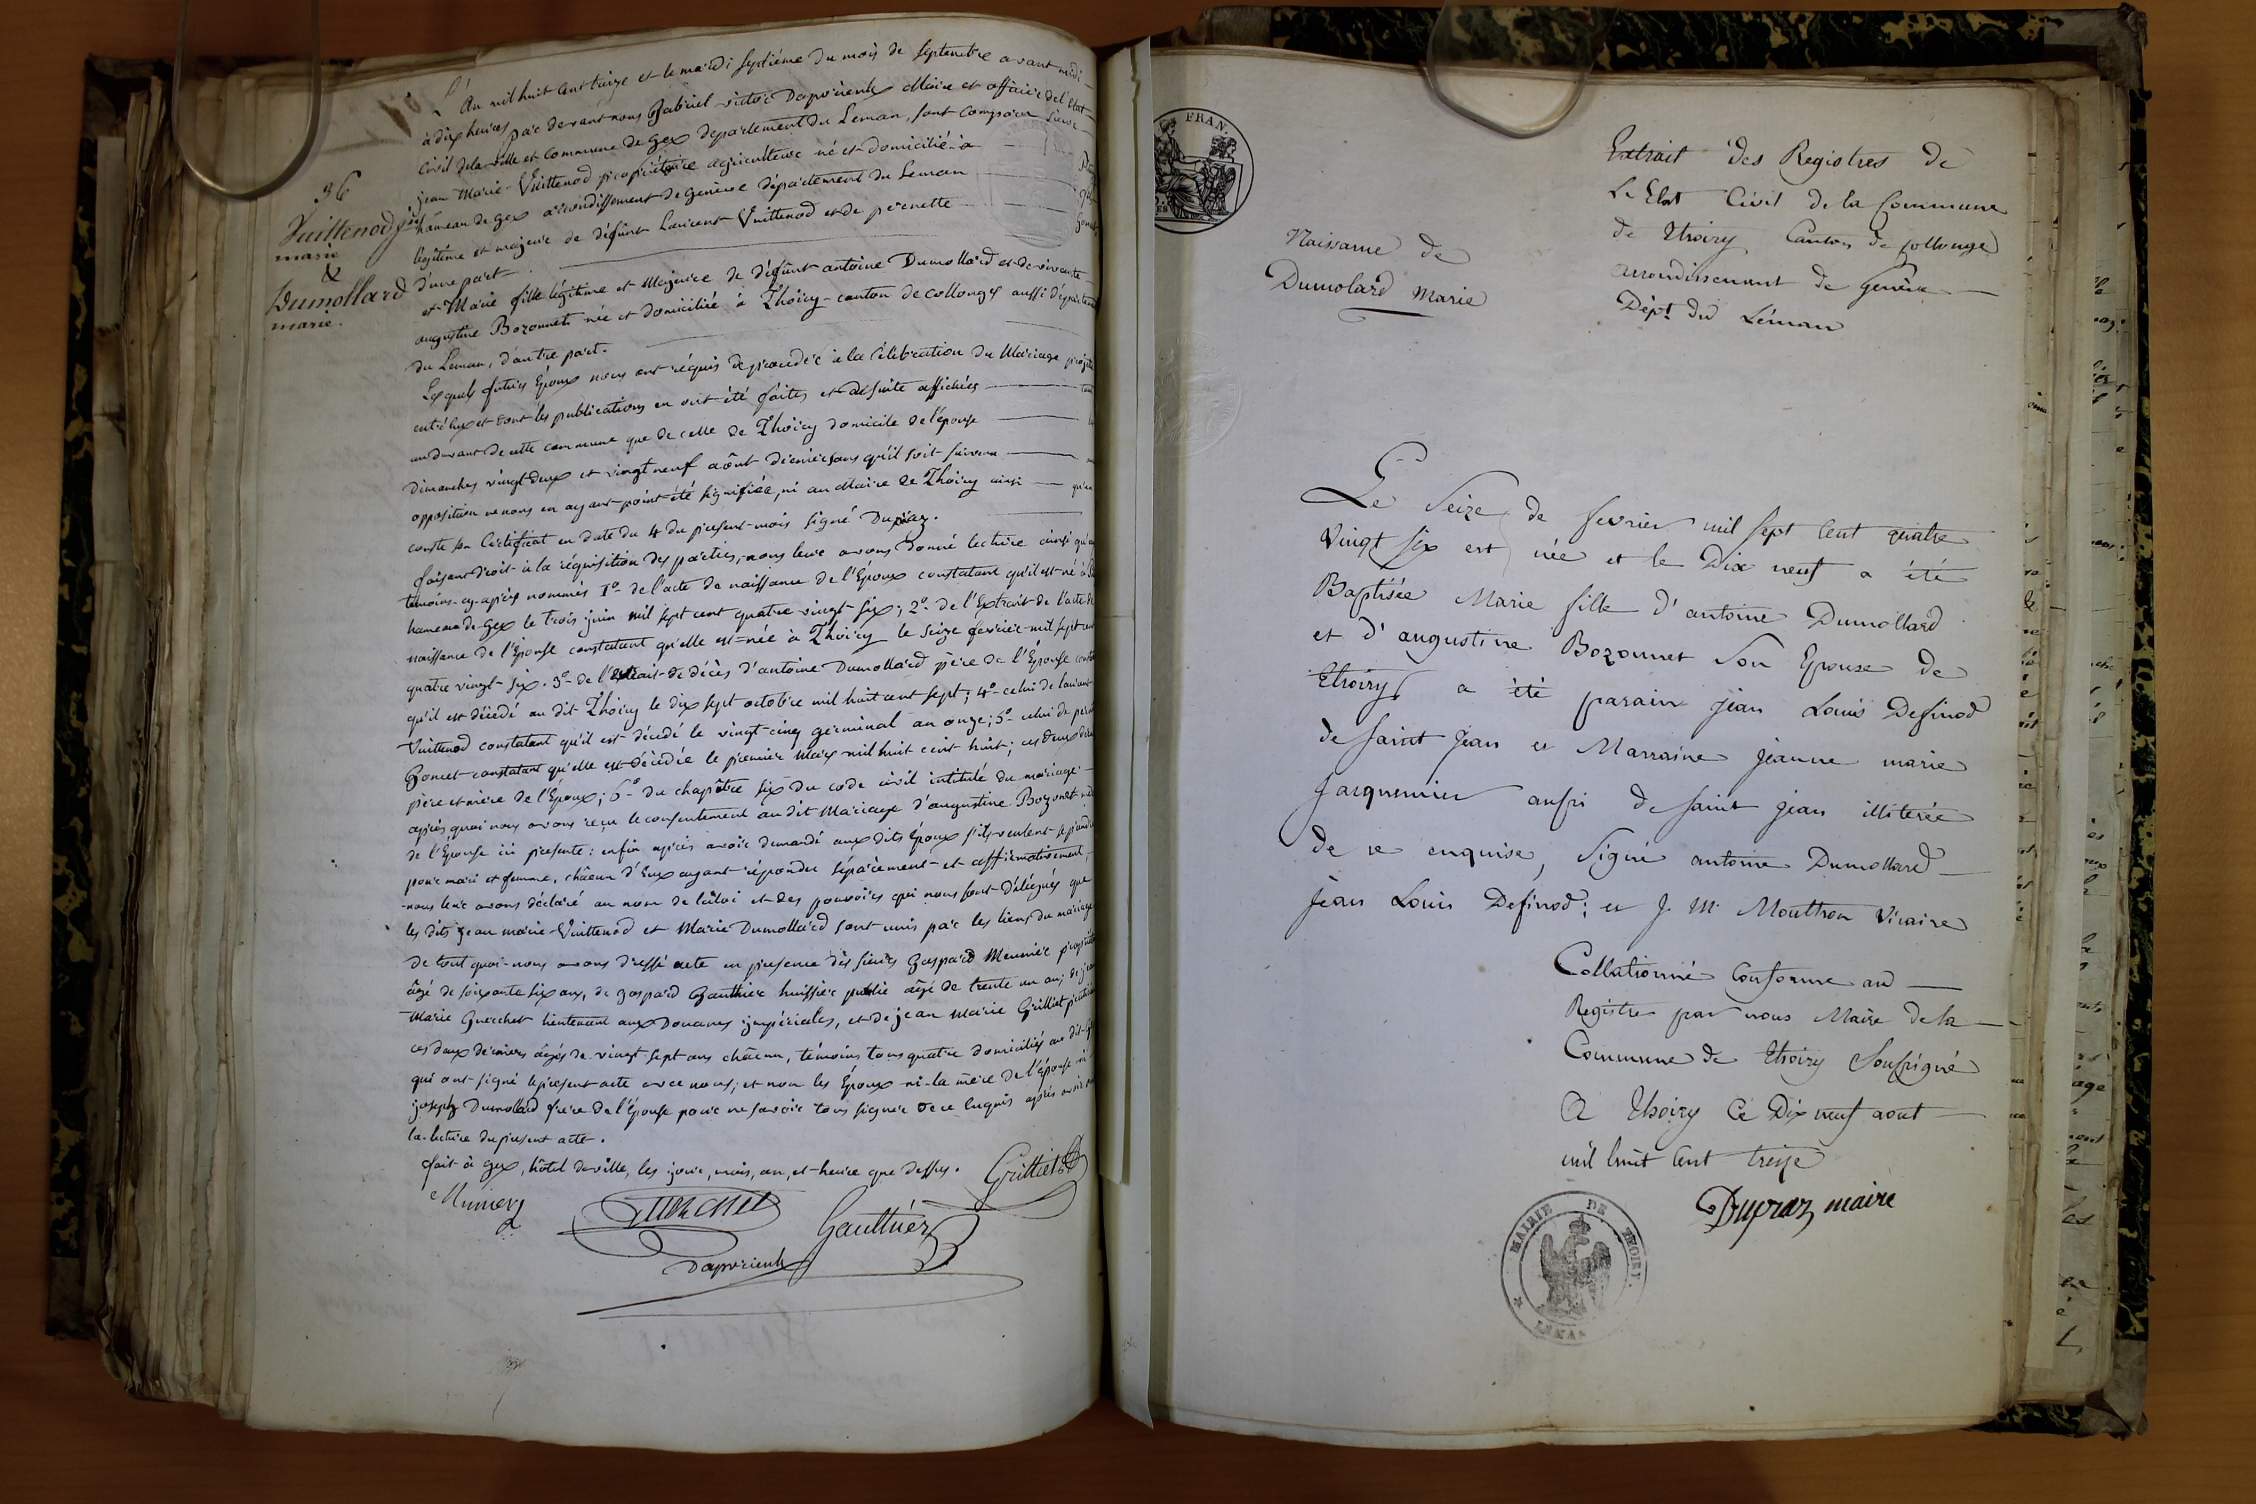 36
Vuittenod jean
marie
&
Dumollard
marie.
L'An mil huit cent treize et le mardi septiéme du mois de septembre avant midi
à dix heures par devant nous Gabriel victor Daprienk Maire et officier de l'Etat
Civil de la ville et Commune de Gex departement du Leman, sont comparu Sieur
jean Marie Vuittenod propriétaire agriculteur né et domicilié à
hameau de Gex arrondissement de Genève département du Leman
légitime et majeur de défunt Laurent Vuittenod et de pernette
d'une part
et Marie fille légitime et Majeure de défunt antoine Dumollard et de vivante
augustine Bozonnet née et domiciliée à Thoiry canton de collonges aussi départem
du Leman, d'autre part.
Lesquels futurs Epoux nous ont réquis de proceder à la Célébration du Mariage projeté
entr'eux et dont les publications en ont été faites et de suite affichées
au devant de cette commune que de celle de Thoiry domicile de l'épouse
dimanches vingt deux et vingt neuf août dernier sans qu'il soit survenu
opposition ne nous en ayant point été signifiée, ni au Maire de Thoiry ainsi qu'en
conste son Certificat en date du 4 du present mois signé Dupraz.
faisant droit à la réquisition des parties, nous leur avons donné lecture ainsi qu'aux
temoins cy-après nommés 1º de l'acte de naissance de l'Epoux constatant qu'il est né à
hameau de Gex le trois juin mil sept cent quatre vingt six; 2º de l'Extrait de l'acte de
naissance de l'Epouse constatant qu'elle est née à Thoiry le seize fevrier mil sept cent
quatre vingt six. 3º de l'Extrait de décès d'antoine Dumollard père de l'Epouse
qu'il est décédé au dit Thoiry le dix sept octobre mil huit cent sept; 4º celui de laurent
Vuittenod constatant qu'il est décédé le vingt cinq germinal an onze; 5º celui de
Gomet constatant qu'elle est décédée le premier Mars mil huit cent huit; ces deux
père et mère de l'Epoux; 6º du chapître six du code civil intitulé du mariage
après quoi nous avons reçu le consentement au dit Mariage d'augustine Bozonet
de l'Epouse ici presente: enfin après avoir demandé aux dits Epoux s'ils veulent se prendre
pour mari et femme, chacun d'Eux ayant répondu séparément et affirmativement,
nous leur avons déclaré au nom de la loi et des pouvoirs qui nous sont délégués que
les dits jean marie Vuittenod et Marie Dumollard sont unis par les liens du mariage
de tout quoi nous avons dressé acte en presence des sieurs Gaspard Meunier
âgé de soixante six ans, de gaspard Gauthier huissier public âgé de trente un an; de jean
Marie Guerchet lieutenant aux Douanes impériales, et de jean Marie Grilliet
ces deux derniers âgés de vingt sept ans châcun, témoins tous quatre domiciliés au dit
qui ont signé le present acte avec nous; et non les Epoux ni la mère de l'épouse ni
joseph Dumollard frere de l'Epouse pour ne savoir tous signer de ce Enquis après avoir
la lecture du présent acte.
fait à gex, hôtel de ville, les jour, mois, an, et heure que dessus.
Grilliet
Munier
Gauthier
Daprienk
FRAN.
Naissance de
Dumolard Marie
Extrait des Registres de
L'Etat Civil de la Commune
de Thoiry Canton de Collonge
arrondissement de Genêve
Dépt. du Léman
Le Seize de fevrier mil sept Cent quatre
Vingt six est née et le Dix neuf a été
Baptisée Marie fille d'antoine Dumollard
et d'augustine Bozonnet Son Epouse de
Thoiry a été parain jean Louis Definod
de saint Jean et Marraine jeanne marie
Jacquemier aussi de saint jean illiterée
de ce enquise, Signé antoine Dumollard
jean Louis Definod; et J. M. Moulthon Vicaire
Collationné Conforme au
Registre par nous Maire de la
Commune de Thoiry Soussigné
A Thoiry Ce Dix neuf aout
mil huit Cent treize
Dupraz maire
MAIRIE DE THOIRY.
LEMAN